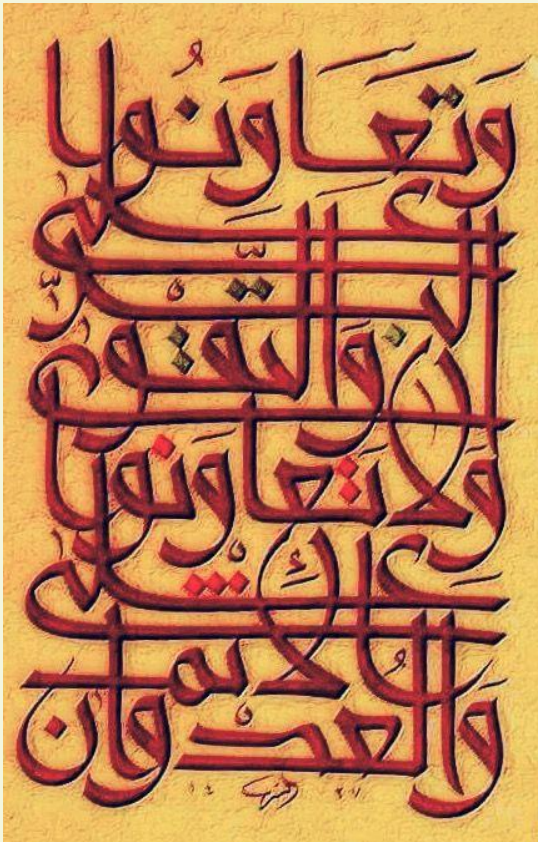 وَتَعَاوَنُوا
عَلَى
الْبِرِّ وَالتَّقْوَى
وَلَا تَعَاوَنُوا
عَلَى
الْإِثْمِ
وَالْعُدْوَانِ